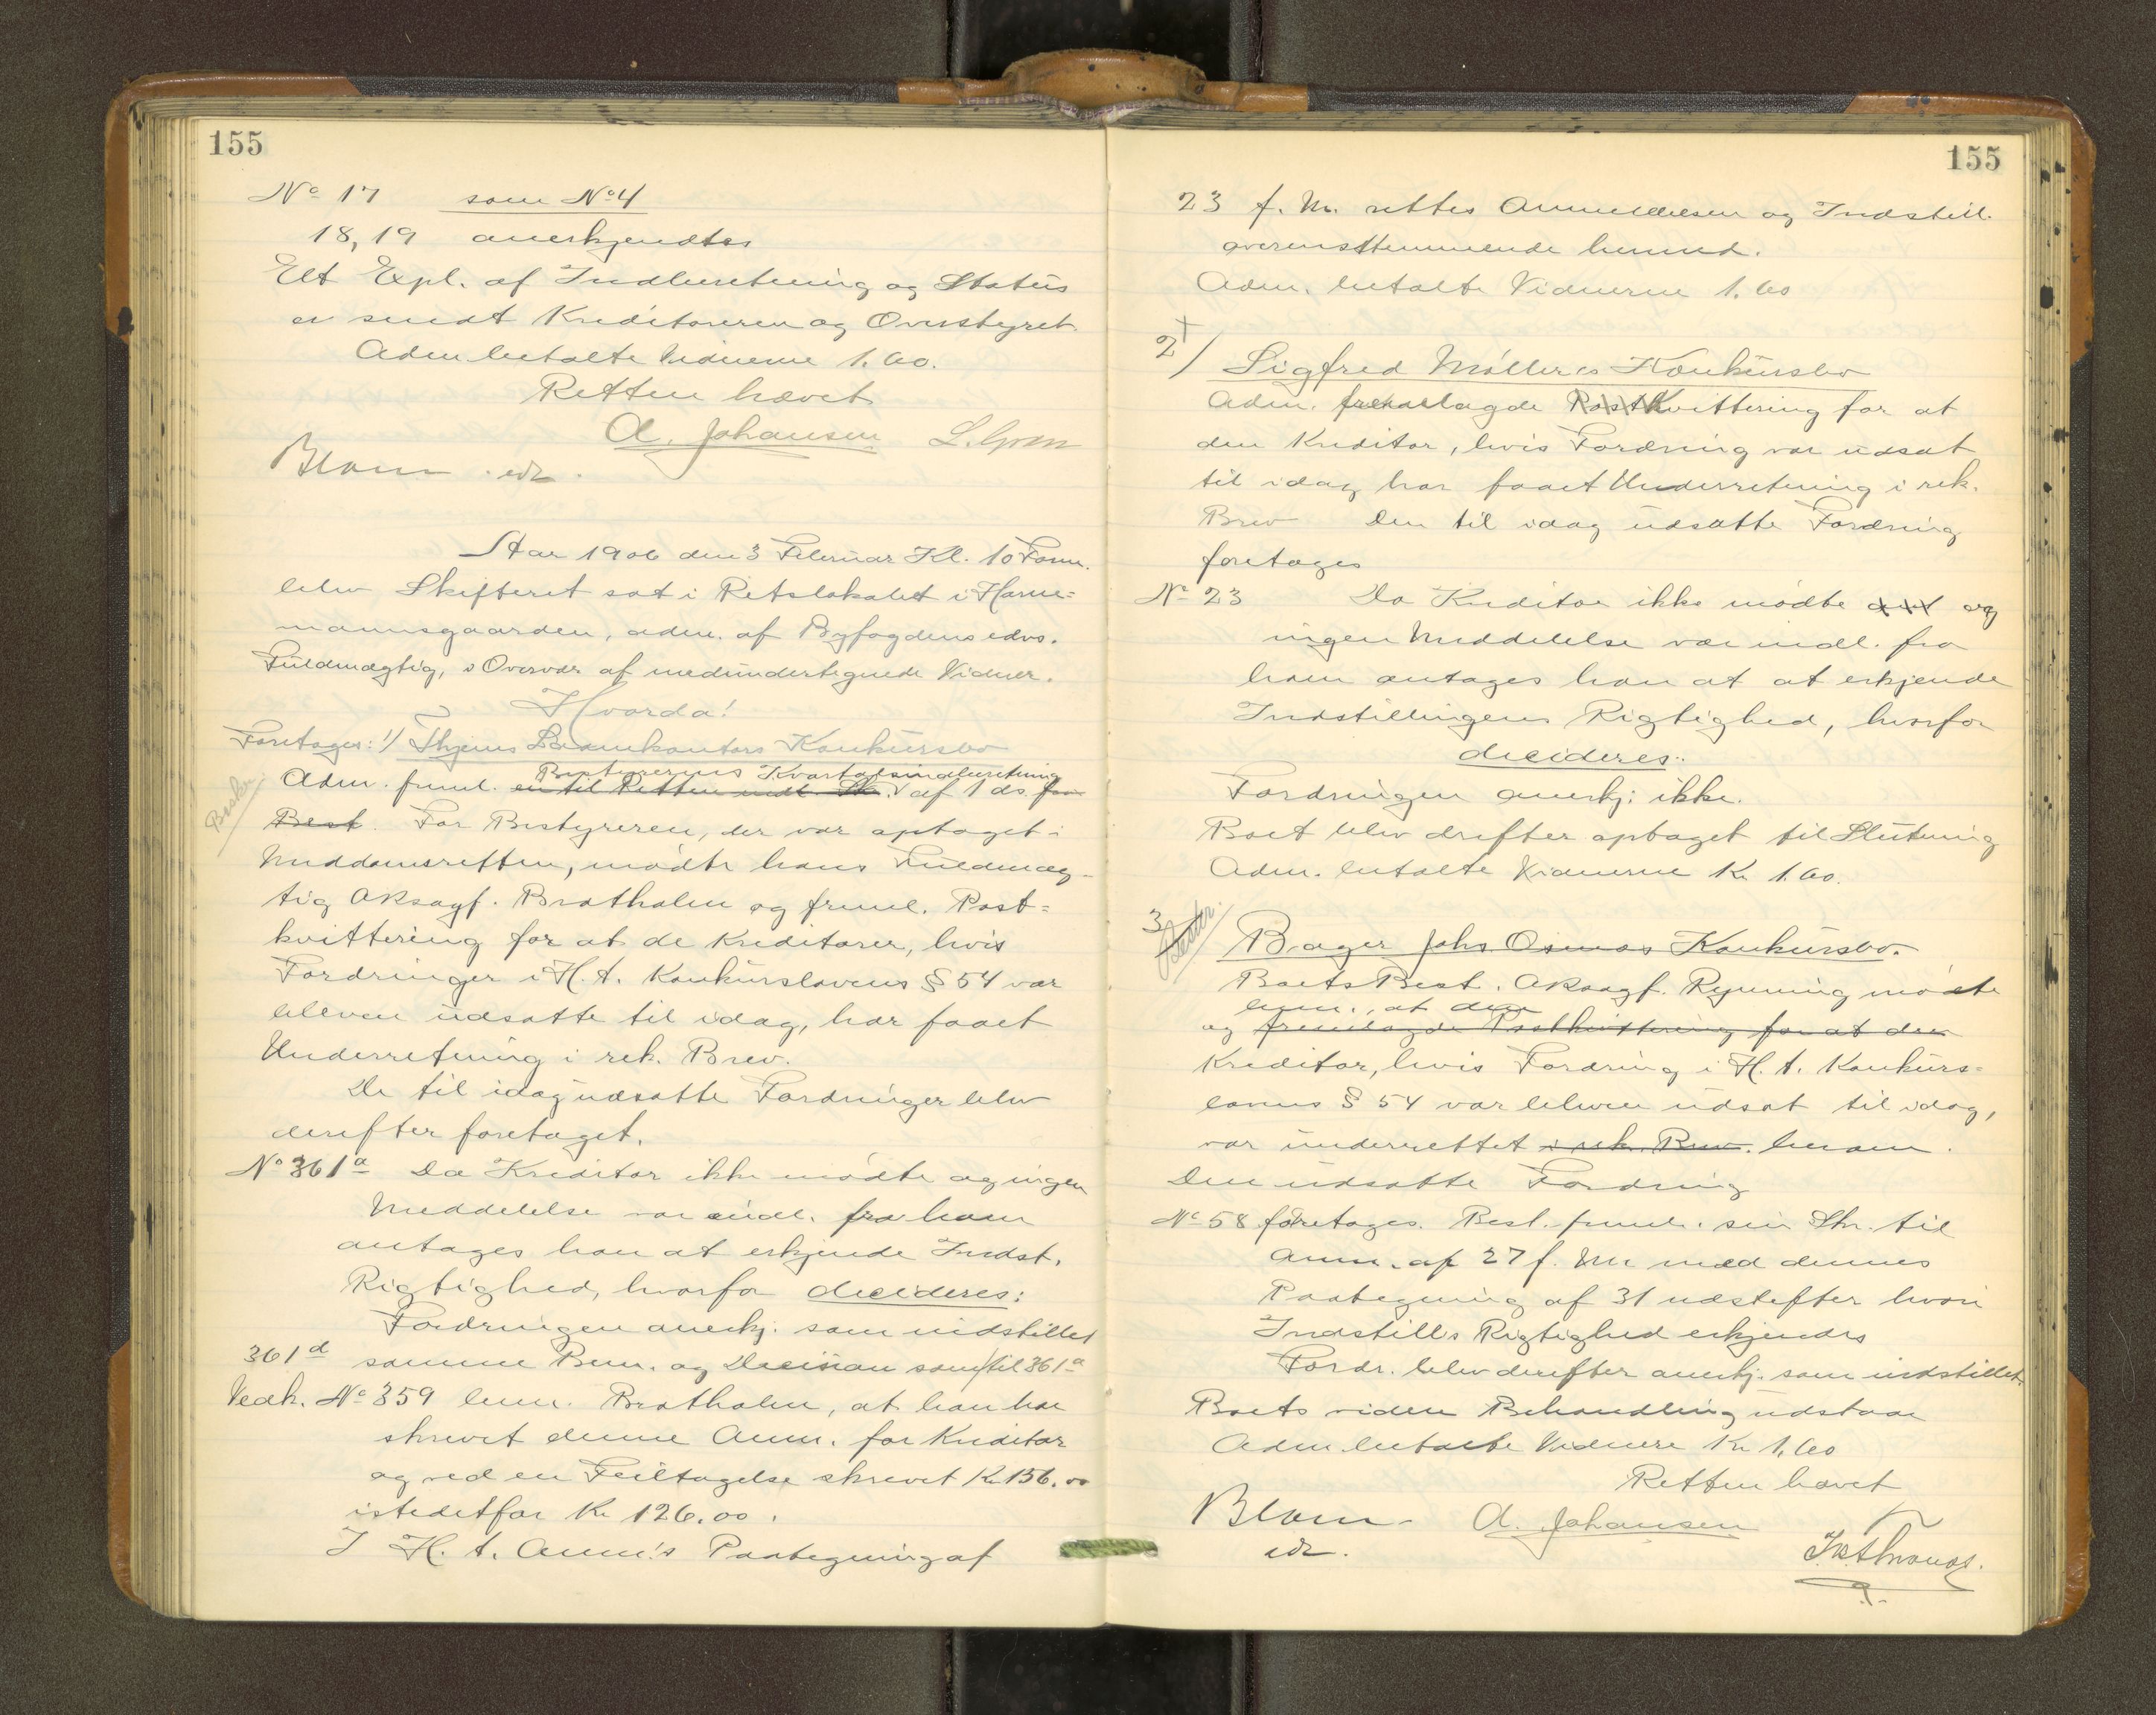 155
No 17 som No 4
18, 19 anerkjendtes
Ett Expl. af Indberetning og Status
er sendt Kreditoreren og Overstyret.
Adm betalte Vidnerne 1.60.
Retten hævet
A. Johansen L. Gren
Blom edv.
Aar 1906 den 3 Februar Kl. 10 Form.
blev Skifteret sat i Retslokalet i Harme=
mannsgaarden, adm. af Byfogdens edvs.
Fuldmægtig, i Overvær af medundertegnede Vidner.
Hvorda!
Foretages: 1/ Thjems Laanekontors Konkursbo
Bestyrerens Kvartalsindberetning
Adm. freml. en til Retten indk Sk. af 1 ds. fra
Best. For Bestyreren, der var optaget i
Meddomsretten, mødte hans Fuldmæg-
tig Oksagf. Bratholm og freml. Post=
kvittering for at de Kreditorer, hvis
Fordringer i H. t. Konkurslovens § 54 var
bleven udsatte til idag, har faaet
Underretning i rek. Brev.
De til idag udsatte Fordringer blev
derefter foretaget.
No 361a Da Kreditor ikke mødte og ingen
Meddelelse var indl. fra ham
antages han at erkjende Indst.
Rigtighed, hvorfor decideres:
Fordringen anerkj. som indstillet
361d samme Bem. og Decision som til 361a
Vedk. No 359 bem. Bratholm, at han har
skrevet denne Anm. for Kreditor
og ved en Feiltagelse skrevet Kr 156.00
istedetfor Kr 126.00.
I H. t. Anm's Paategning af
155
23 f. M. rettes Anmeldelsen og Indstill.
overensstemmende hermed.
Adm. betalte Vidnerne 1.60
2/ Sigfred Møllers Konkursbo
Adm. fremlagde Postkvittering for at
den Kreditor, hvis Fordring var udsat
til idag har faaet Underretning i rek.
Brev Den til idag udsatte Fordring
foretages
No 23 Da Kreditor ikke mødte og
ingen Meddelelse var indl. fra
ham antages han at at erkjende
Indstillingens Rigtighed, hvorfor
decideres:
Fordringen anerkj. ikke.
Boet blev drefter optaget til Slutning
Adm. betalte Vidnerne Kr 1.60.
3/ Bager Johs Osmas Konkursbo.
Boets Best. Oksagf. Rynning mødte
bem., at den
og fremlagde Postkvittering for at den
Kreditor, hvis Fordring i H. t. Konkurs=
lovens § 54 var bleven udsat til idag,
var underrettet i rek. Brev. herom.
Den udsatte Fordring
No 58 foretages. Best. freml. sin Skr. til
Anm. af 27 f. M. med dennes
Paategning af 31 udstefter hvori
Indstill's Rigtighed erkjendes
Fordr. blev derefter anerkj. som indstillet.
Boets videre Behandling udstaar
Adm betalte Vidnere Kr 1,60
Retten hævet
Blom. A. Johansen
edv.